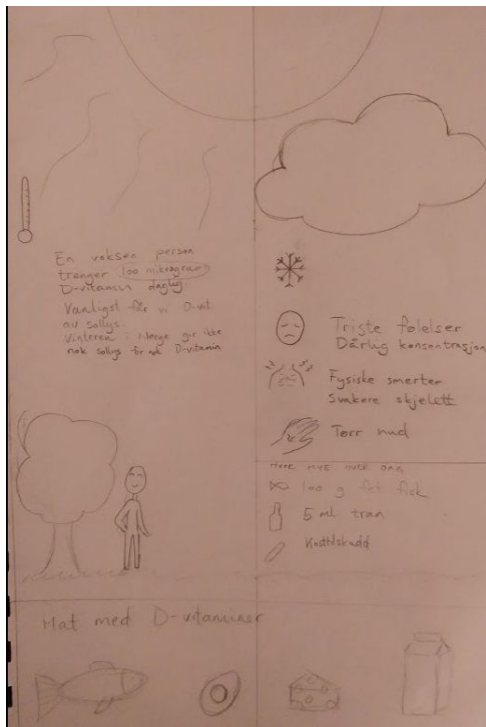 En voksen person
trenger 100 mikrogram
D-vitamin daglig
Vanligst får vi D-vit
av sollys.
Vinteren i Norge gir ikke
nok sollys for nok D-vitamin
Triste følelser
Dårlig konsentrasjon
Fysiske smerter
Svakere skjelett
Tørr hud
HVOR MYE HVER DAG
100 g fet fisk
5 ml. tran
Kosttilskudd
Mat med D-vitaminer